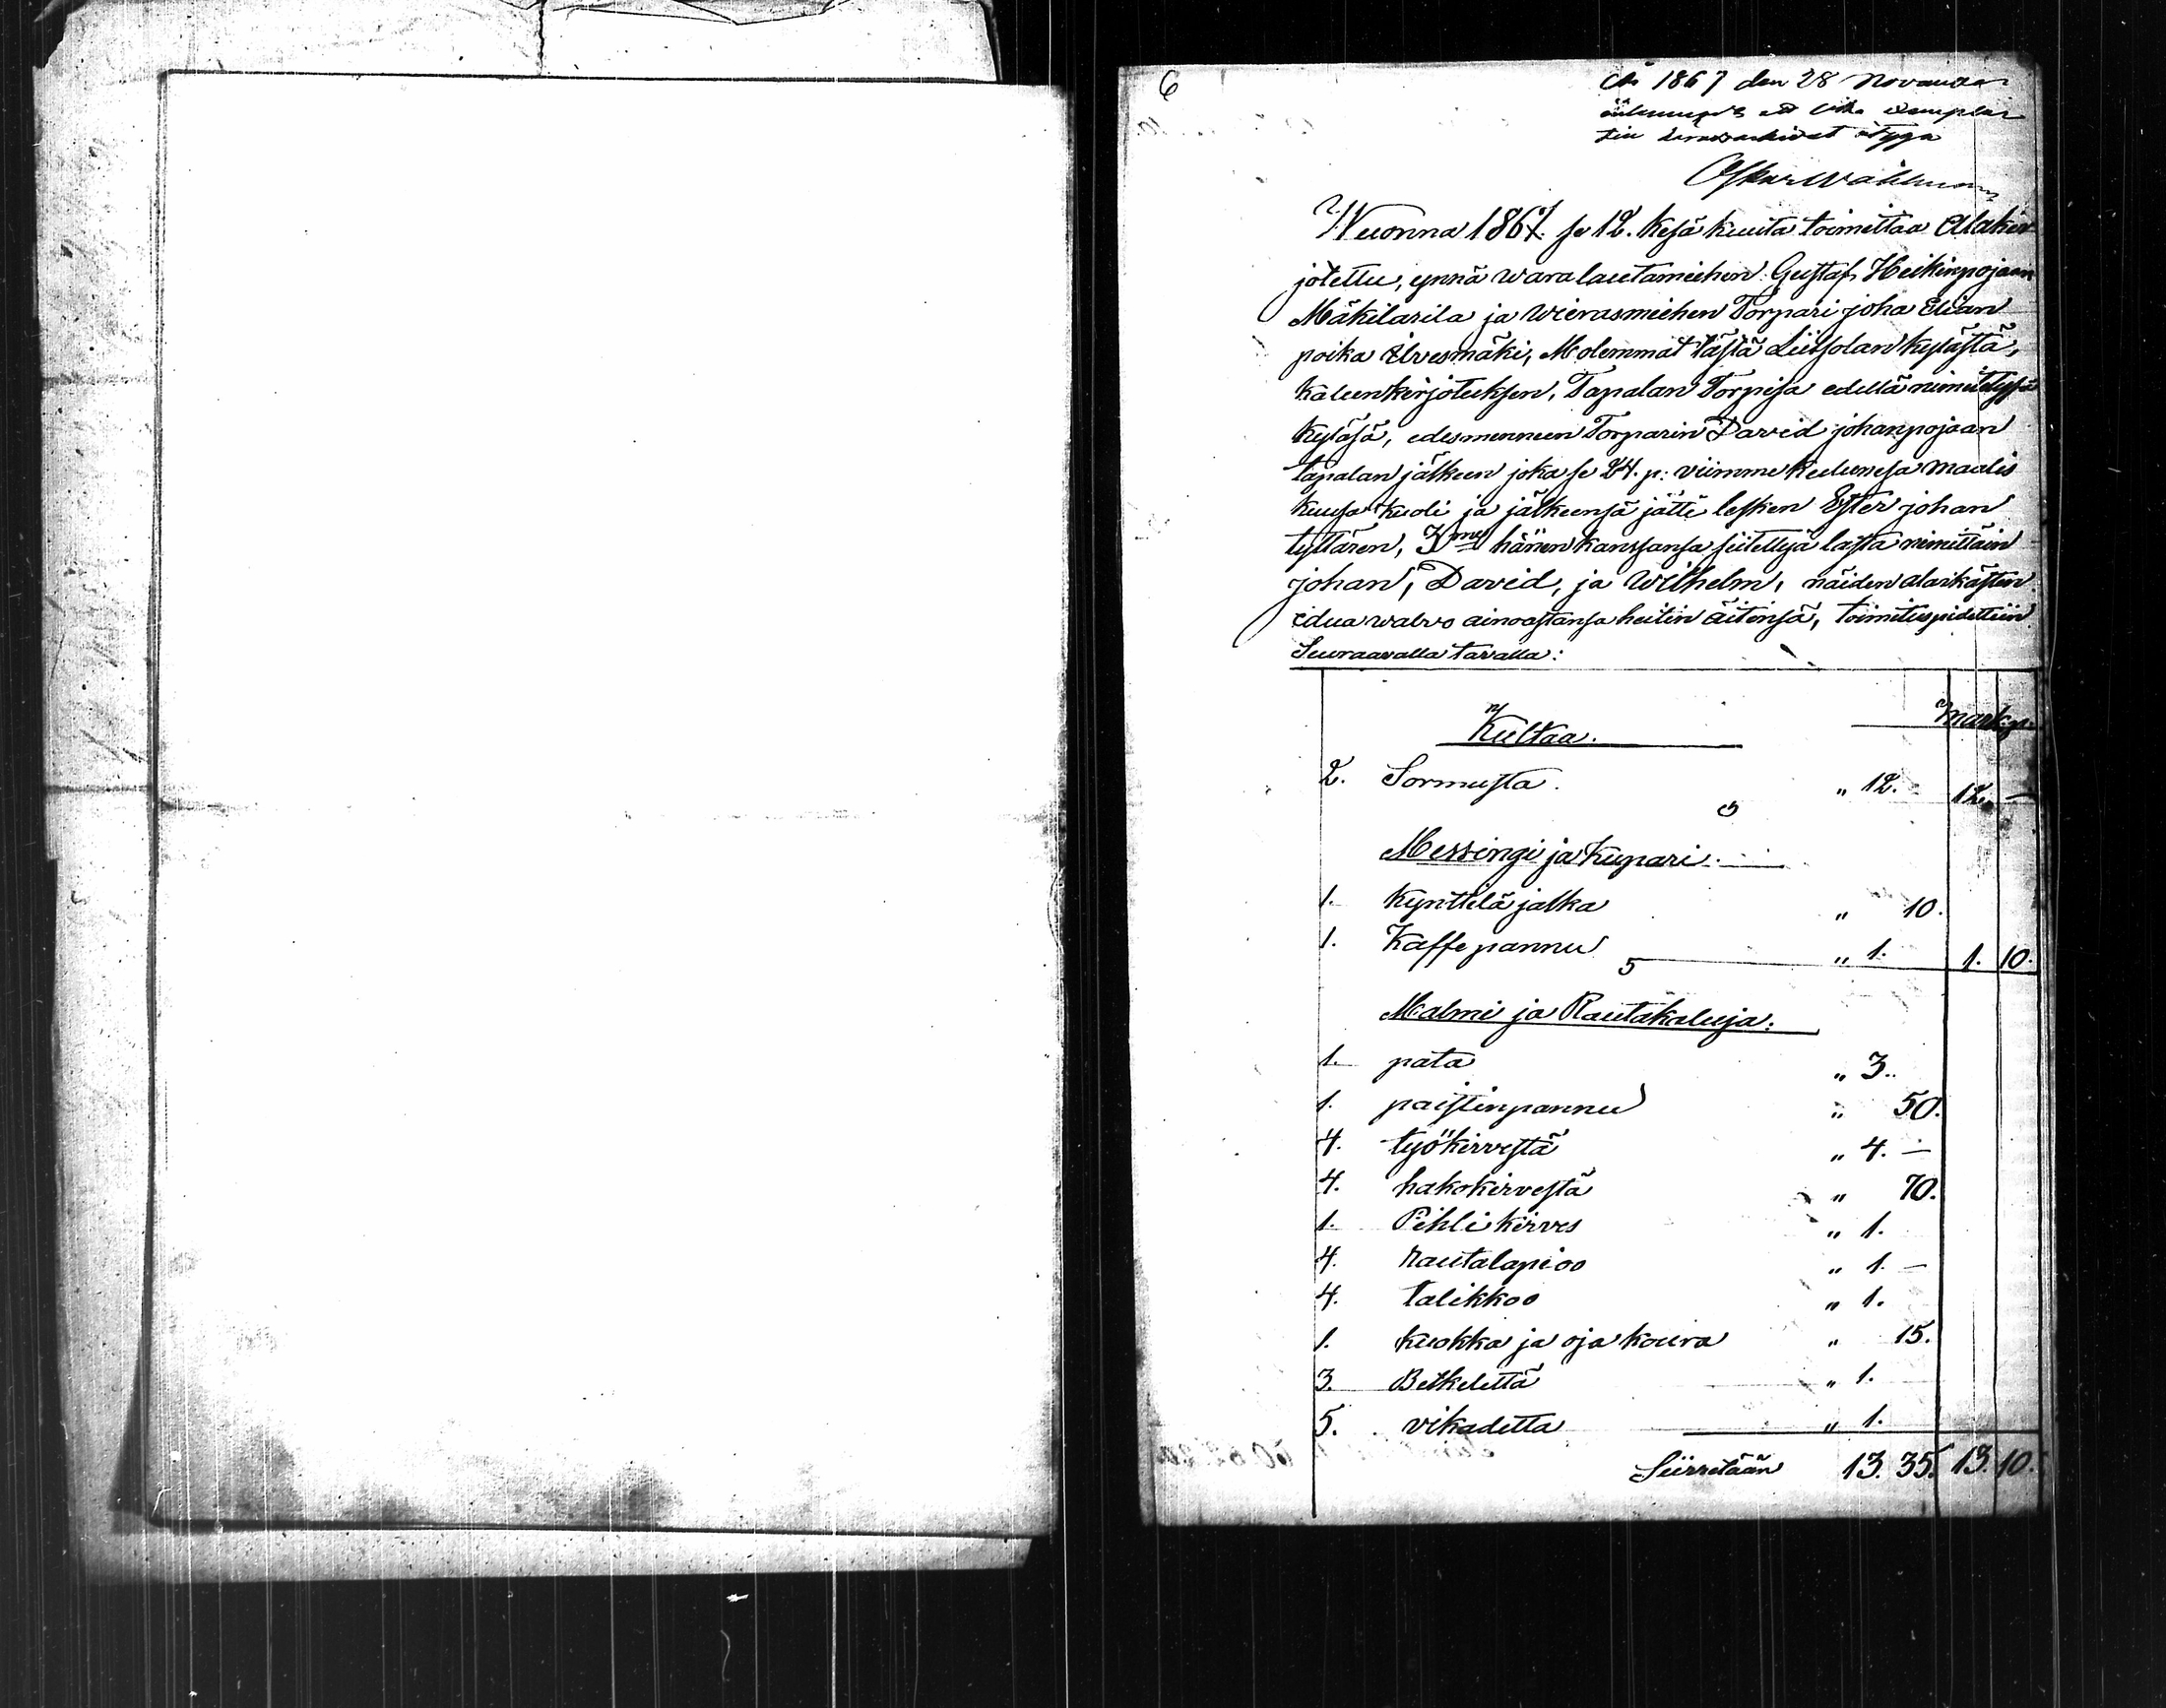 6
År 1867 den 28 November
till häradsarkivet
Oskar Wallman
Wuonna 1867 se 12. Kesäkuuta toimittaa Allakir
jotettu, ynnä waralautamiehen Gustaf Heikinpojaan
Mäkilarila ja wierasmiehen Torpari joha Elian
poika Ilvesmäki, Molemmat tästä Liitsolan kylästä,
Kaluunkirjotuksen, Tapalan Torpisa edellä nimitetysä
kyläsä, edesmenneen Torparin David johanpojaan
tapalan jälkeen joka se 24. p: viimme kuluneesa maalis
kuusa kuoli ja jälkeensä jätti lesken Ester johan
tyttären, 3me hänen kanssansa siitettyjä lasta nimittäin
johan, David, ja Wilhelm, näiden alaikästen
edua walvo ainoastansa heitin äitensä, toimitus pidettiin
Seuraavalla tavalla:
mark p.
Kultaa.
2. Sormusta. " 12. 12. —
Messingi ja Kupari.
1. Kynttilä jalka " 10.
1. Kaffe pannu " 1. 1. 10.
Malmi ja Rautakaluja.
1. pata " 3.
1. paistinpannu " 50.
4. työkirvestä " 4. —
4. hakokirvestä " 70.
1. Pihli kirves " 1.
4. rautalapioo " 1. —
4. talikkoo " 1.
1. kuokka ja oja koura " 15.
3. Betkelettä " 1.
5. vikadetta " 1.
Siirretään 13. 35. 13. 10.